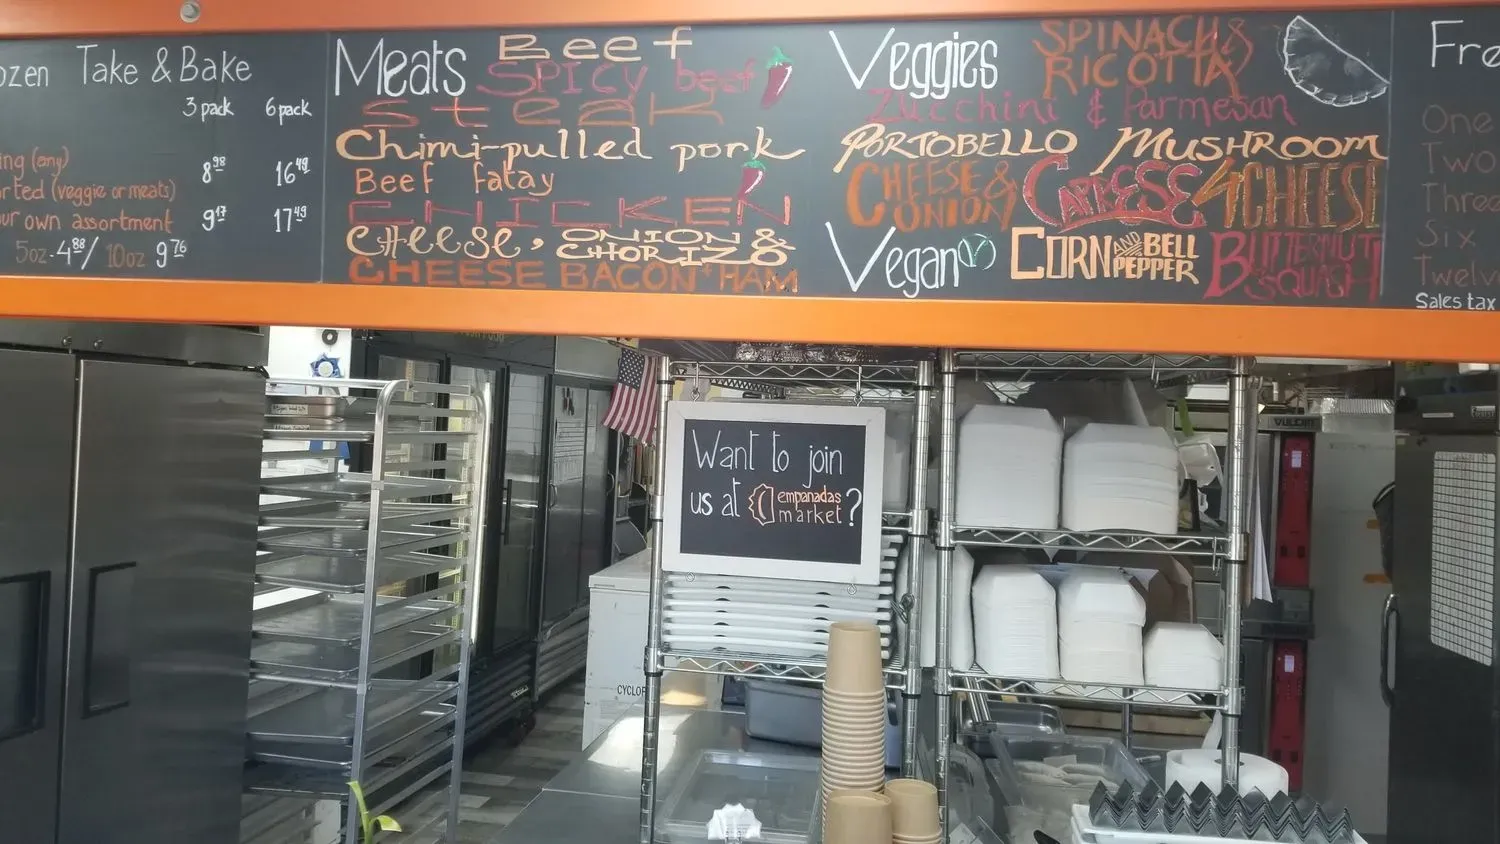 ozen Take & Bake
3 pack 6 pack
ing (any) 8.98 16.49
rted (veggie or meats)
our own assortment 9.17 17.49
5oz-4.88/ 10oz 9.76
Meats Beef
SPICY beef
steak
Chimi-pulled pork
Beef fatay
CHICKEN
CHEESE, ONION & CHORIZO
CHEESE BACON+HAM
Veggies SPINACH & RICOTTA
Zucchini & Parmesan
PORTOBELLO MUSHROOM
CHEESE & ONION CAPRESE 4CHEESE
Vegan V CORN AND BELL PEPPER BUTTERNUT SQUASH
Fre
One
Two
Three
Six
Twelve
Sales tax
Want to join
us at empanadas market?
CYCLO
VULCAN